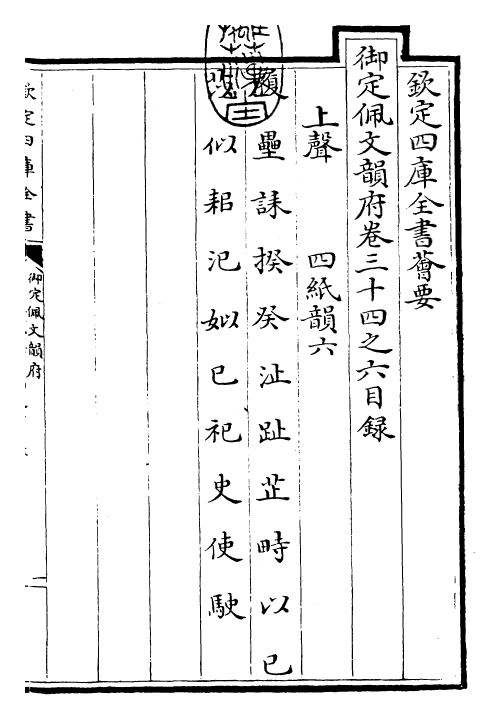 欽定四庫全書薈要
御定佩文韻府卷三十四之六目録
上聲　四紙韻六
壘　誄　揆　癸　沚　趾　芷　畤　以　已
似　耜　汜　姒　巳　祀　史　使　駛
欽定四庫全書
御定佩文韻府